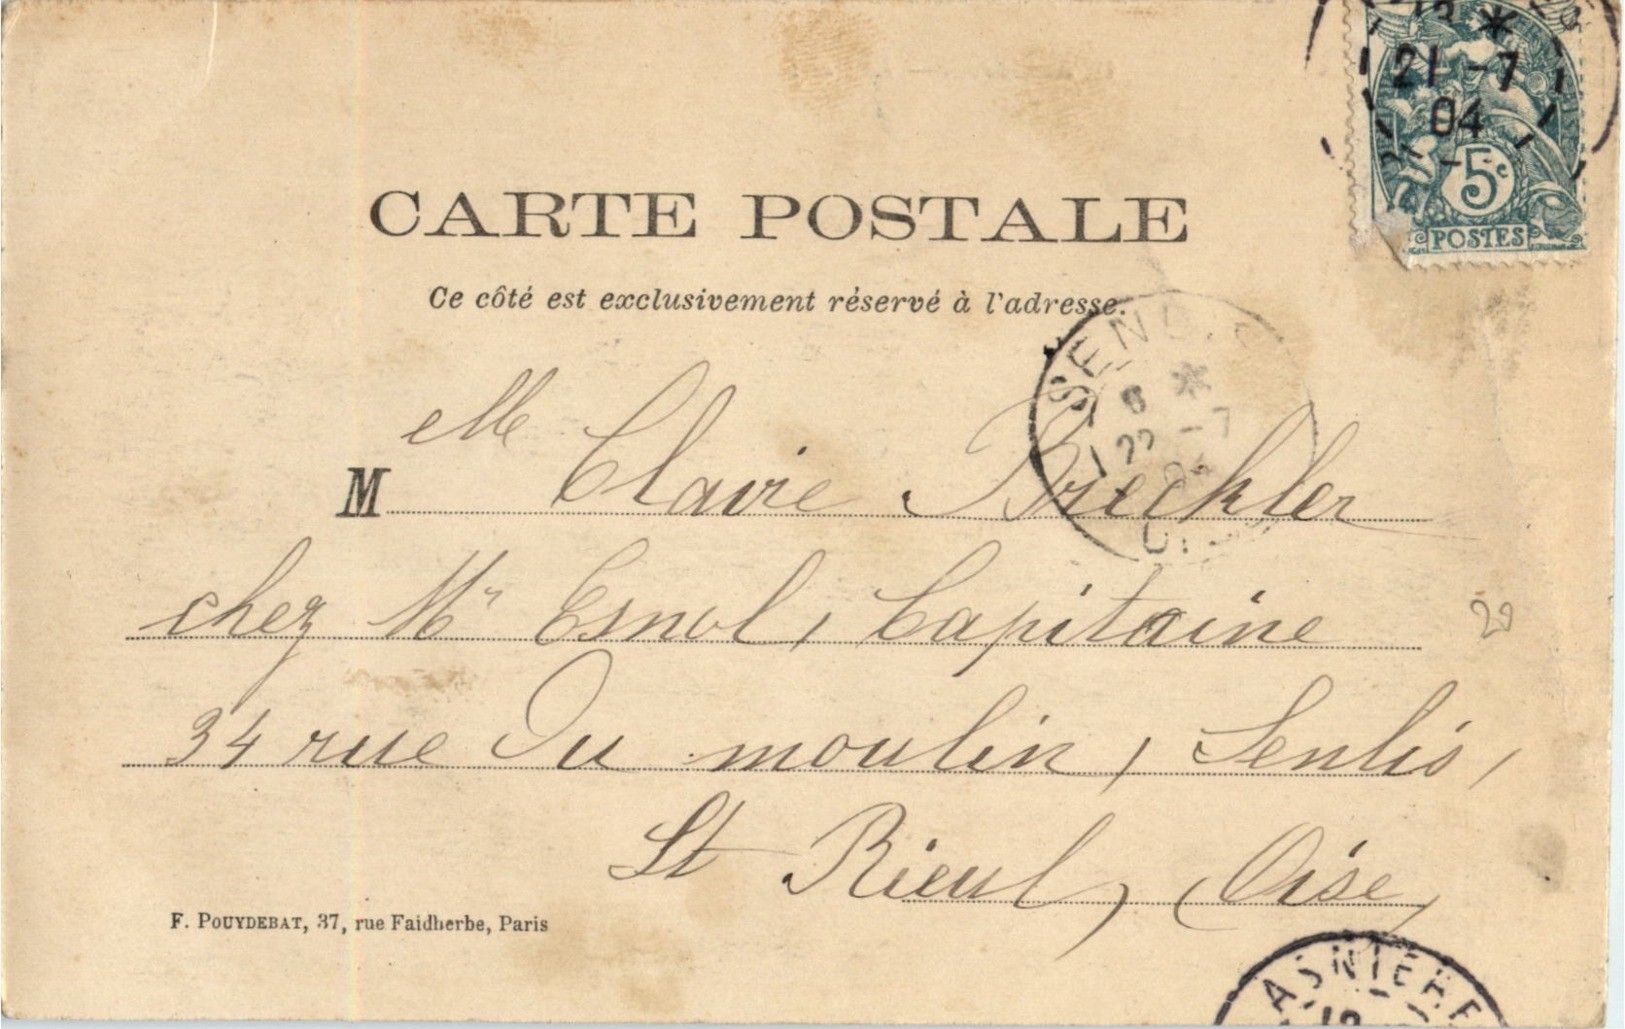 * 21 -7 04
5c
POSTES
CARTE POSTALE
Ce côté est exclusivement réservé à l'adresse.
SENLIS
6 *
22 -7
04
Melle Claire Breckler
chez Mr Esnol, Capitaine
29
34 rue du moulin, Senlis,
St Rieul, Oise,
F. POUYDEBAT, 37, rue Faidherbe, Paris
ASNIERE